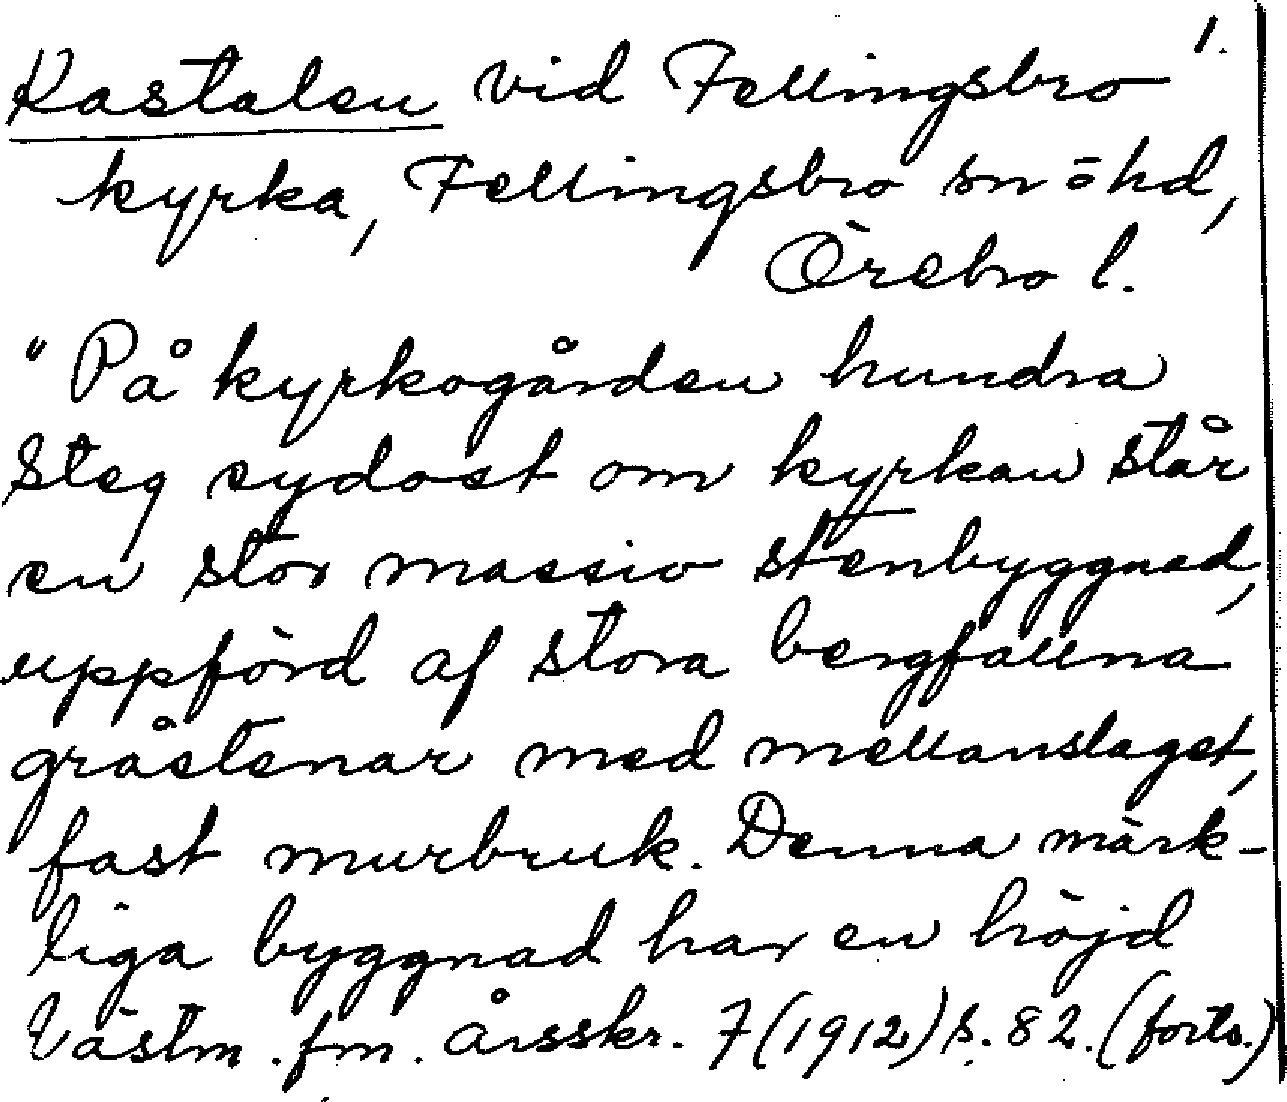 1.
Kastalen vid Fellingsbro
kyrka, Fellingsbro sn ö hd,
Örebro l.
"På kyrkogården hundra
steg sydost om kyrkan står
en stor massiv stenbyggnad,
uppförd af stora bergfallna
gråstenar med mellanslaget,
fast murbruk. Denna märk-
liga byggnad har en höjd
Västm. fm. årsskr. 7 (1912) s. 82. (forts.)